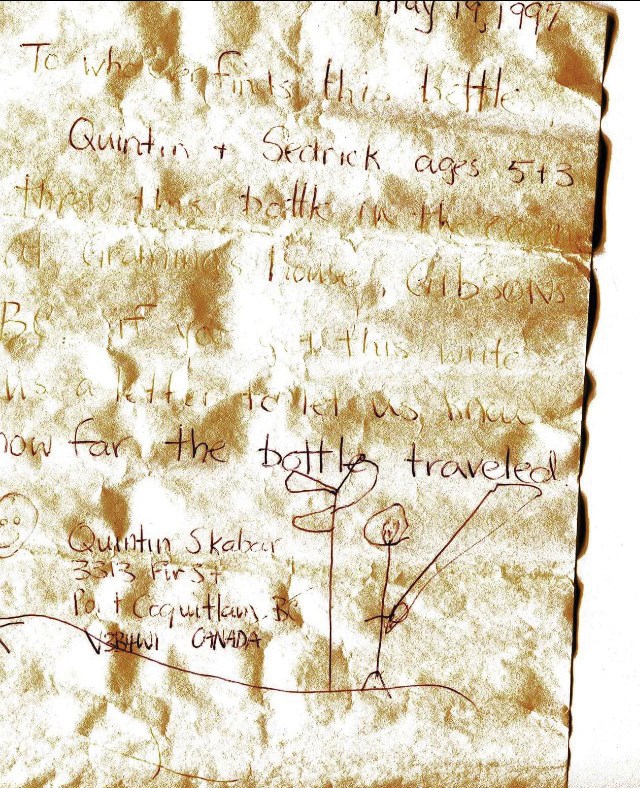 May 19, 1997
To whoever finds this bottle,
Quintin + Sedrick ages 5+3
threw this bottle in the ocean
at Gramma's house, GIBSONS
BC. If you get this write
us a letter to let us know
how far the bottle traveled.
Quintin Skabar
3313 First
Port Coquitlam, BC
CANADA